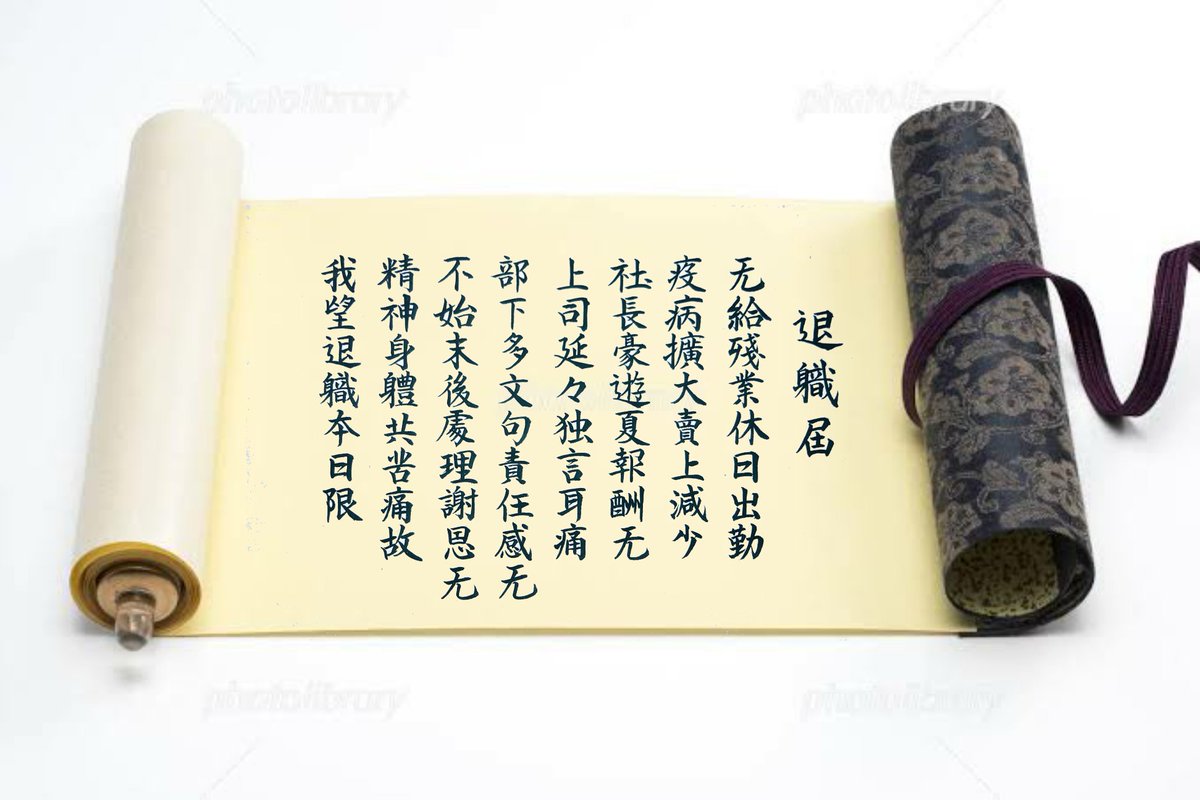 退職届
无給殘業休日出勤
疫病擴大賣上減少
社長豪遊夏報酬无
上司延々独言耳痛
部下多文句責任感无
不始末後處理謝恩无
精神身體共苦痛故
我望退職本日限
photolibrary
photolibrary
photolibrary
photolibrary